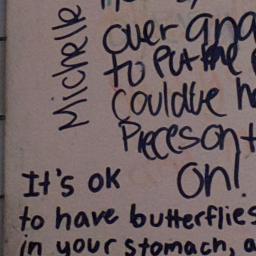 Michelle
over and
to put the
couldve h
Pieces on t
on!
It's ok
to have butterflies
in your stomach, a